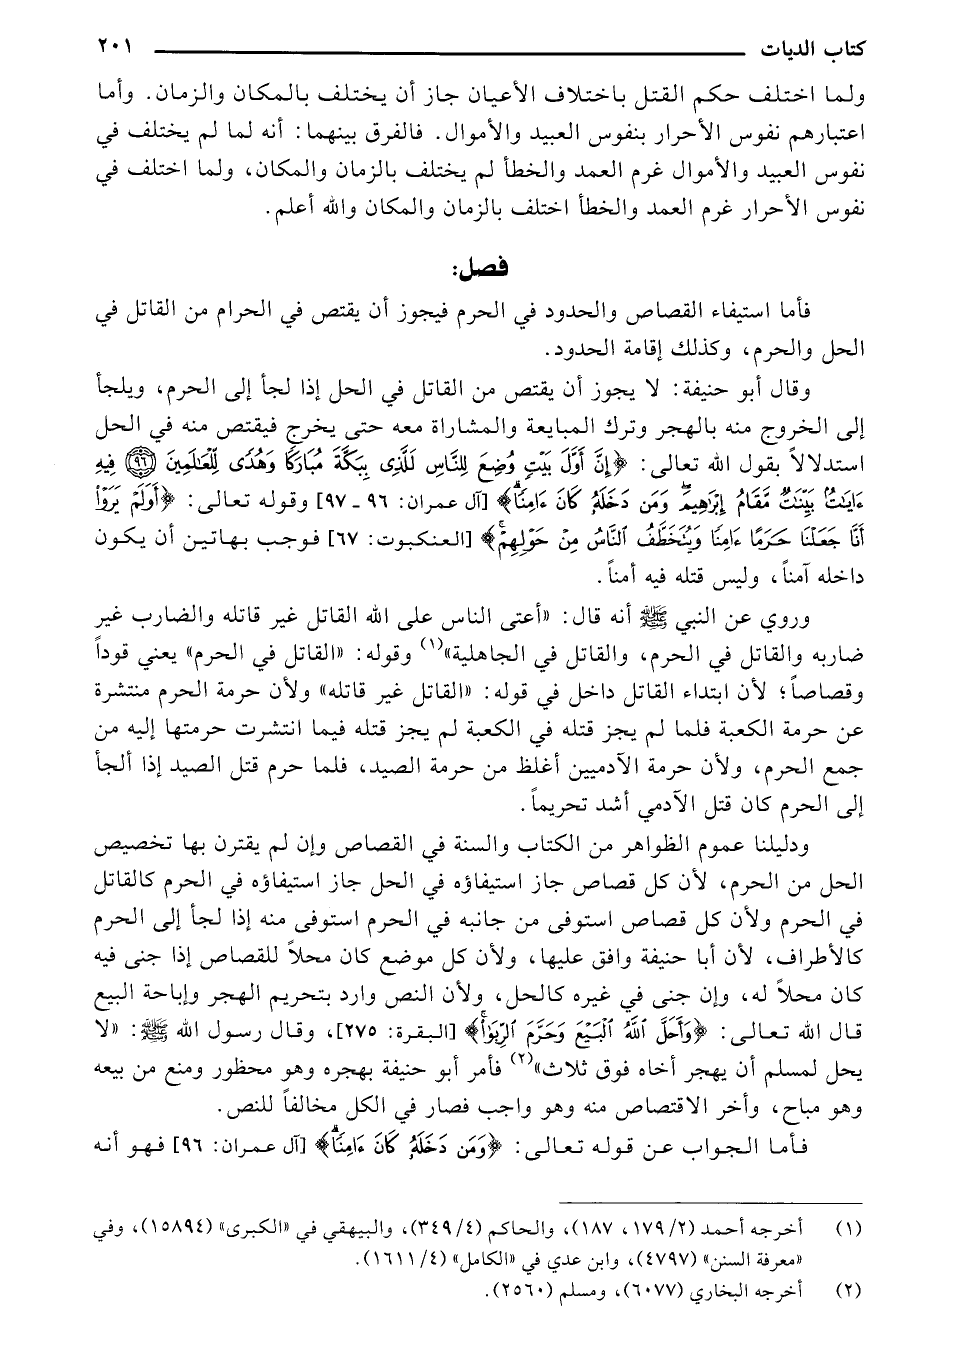 كتاب الديات ٢٠١
ولما اختلف حكم القتل باختلاف الأعيان جاز أن يختلف بالمكان والزمان. وأما
اعتبارهم نفوس الأحرار بنفوس العبيد والأموال. فالفرق بينهما: أنه لما لم يختلف في
نفوس العبيد والأموال غرم العمد والخطأ لم يختلف بالزمان والمكان، ولما اختلف في
نفوس الأحرار غرم العمد والخطأ اختلف بالزمان والمكان والله أعلم.
فصل:
فأما استيفاء القصاص والحدود في الحرم فيجوز أن يقتص في الحرام من القاتل في
الحل والحرم، وكذلك إقامة الحدود.
وقال أبو حنيفة: لا يجوز أن يقتص من القاتل في الحل إذا لجأ إلى الحرم، ويلجأ
إلى الخروج منه بالهجر وترك المبايعة والمشاراة معه حتى يخرج فيقتص منه في الحل
استدلالاً بقول الله تعالى: ﴿إِنَّ أَوَّلَ بَيْتٍ وُضِعَ لِلنَّاسِ لَلَّذِى بِبَكَّةَ مُبَارَكًا وَهُدًى لِّلْعَالَمِينَ ٩٦ فِيهِ
ءَايَٰتٌۢ بَيِّنَٰتٌ مَّقَامُ إِبْرَٰهِيمَۖ وَمَن دَخَلَهُۥ كَانَ ءَامِنًاۗ﴾ [آل عمران: ٩٦ ـ ٩٧] وقوله تعالى: ﴿أَوَلَمْ يَرَوْا۟
أَنَّا جَعَلْنَا حَرَمًا ءَامِنًا وَيُتَخَطَّفُ ٱلنَّاسُ مِنْ حَوْلِهِمْۚ﴾ [العنكبوت: ٦٧] فوجب بهاتين أن يكون
داخله آمناً، وليس قتله فيه أمناً.
وروي عن النبي ﷺ أنه قال: «أعتى الناس على الله القاتل غير قاتله والضارب غير
ضاربه والقاتل في الحرم، والقاتل في الجاهلية»(١) وقوله: «القاتل في الحرم» يعني قوداً
وقصاصاً؛ لأن ابتداء القاتل داخل في قوله: «القاتل غير قاتله» ولأن حرمة الحرم منتشرة
عن حرمة الكعبة فلما لم يجز قتله في الكعبة لم يجز قتله فيما انتشرت حرمتها إليه من
جمع الحرم، ولأن حرمة الآدميين أغلظ من حرمة الصيد، فلما حرم قتل الصيد إذا ألجأ
إلى الحرم كان قتل الآدمي أشد تحريماً.
ودليلنا عموم الظواهر من الكتاب والسنة في القصاص وإن لم يقترن بها تخصيص
الحل من الحرم، لأن كل قصاص جاز استيفاؤه في الحل جاز استيفاؤه في الحرم كالقاتل
في الحرم ولأن كل قصاص استوفى من جانبه في الحرم استوفى منه إذا لجأ إلى الحرم
كالأطراف، لأن أبا حنيفة وافق عليها، ولأن كل موضع كان محلاً للقصاص إذا جنى فيه
كان محلاً له، وإن جنى في غيره كالحل، ولأن النص وارد بتحريم الهجر وإباحة البيع
قال الله تعالى: ﴿وَأَحَلَّ ٱللَّهُ ٱلْبَيْعَ وَحَرَّمَ ٱلرِّبَوٰا۟ۚ﴾ [البقرة: ٢٧٥]، وقال رسول الله ﷺ: «لا
يحل لمسلم أن يهجر أخاه فوق ثلاث»(٢) فأمر أبو حنيفة بهجره وهو محظور ومنع من بيعه
وهو مباح، وأخر الاقتصاص منه وهو واجب فصار في الكل مخالفاً للنص.
فأما الجواب عن قوله تعالى: ﴿وَمَن دَخَلَهُۥ كَانَ ءَامِنًاۗ﴾ [آل عمران: ٩٦] فهو أنه
(١) أخرجه أحمد (٢/ ١٧٩، ١٨٧)، والحاكم (٤/ ٣٤٩)، والبيهقي في «الكبرى» (١٥٨٩٤)، وفي
«معرفة السنن» (٤٧٩٧)، وابن عدي في «الكامل» (٤/ ١٦١١).
(٢) أخرجه البخاري (٦٠٧٧)، ومسلم (٢٥٦٠).